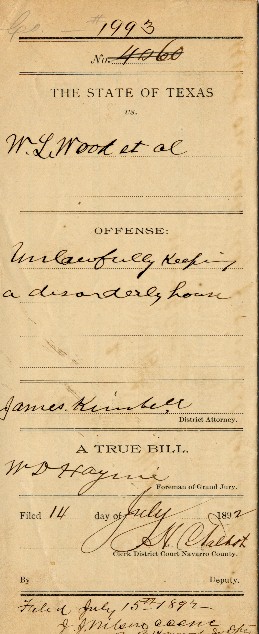 1993
No. 4060
THE STATE OF TEXAS
vs.
W. L. Wood et al
OFFENSE:
Unlawfully Keeping
a disorderly house
James Kimbell
District Attorney.
A TRUE BILL.
W D Haynie
Foreman of Grand Jury.
Filed 14 day of July 1892
Clerk District Court Navarro County.
By Deputy.
Filed July 15th 1892